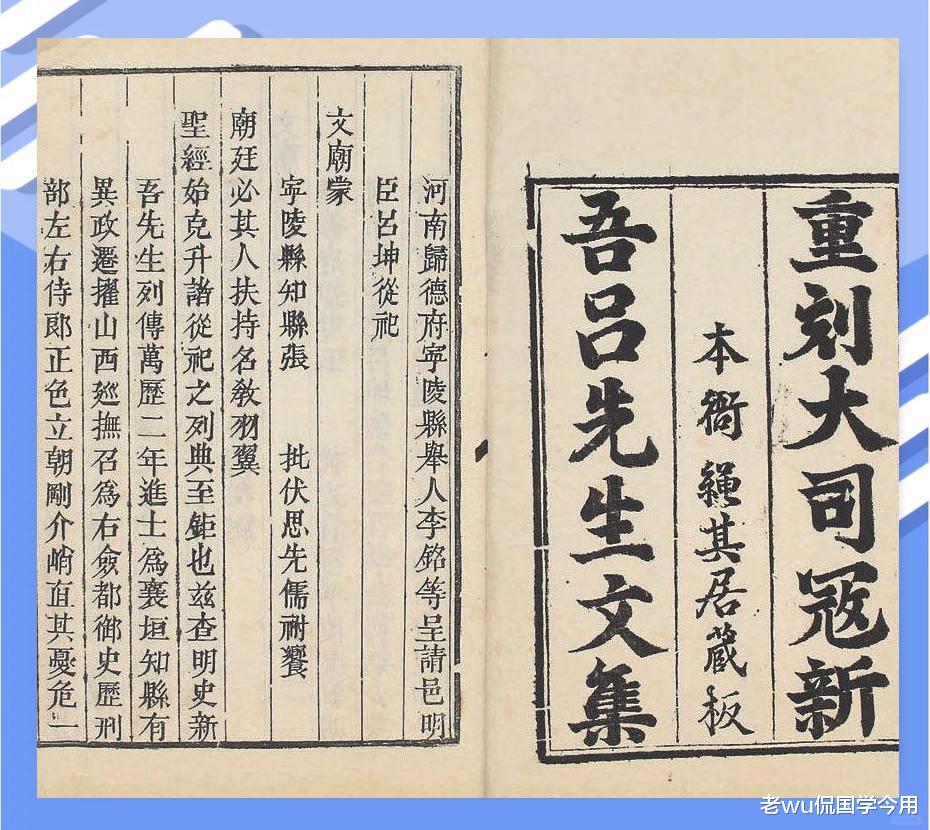 重刻大司冦新
本衙 繩其居藏板
吾呂先生文集
河南歸德府寧陵縣舉人李銘等呈請邑明
臣呂坤從祀
文廟蒙
寧陵縣知縣張 批伏思先儒祔饗
廟廷必其人扶持名敎羽翼
聖經始克升諸從祀之列典至鉅也茲查明史新
吾先生列傳萬歷二年進士爲襄垣知縣有
異政遷擢山西廵撫召爲右僉都御史歷刑
部左右侍郞正色立朝剛介峭直其憂危一
老wu侃国学今用